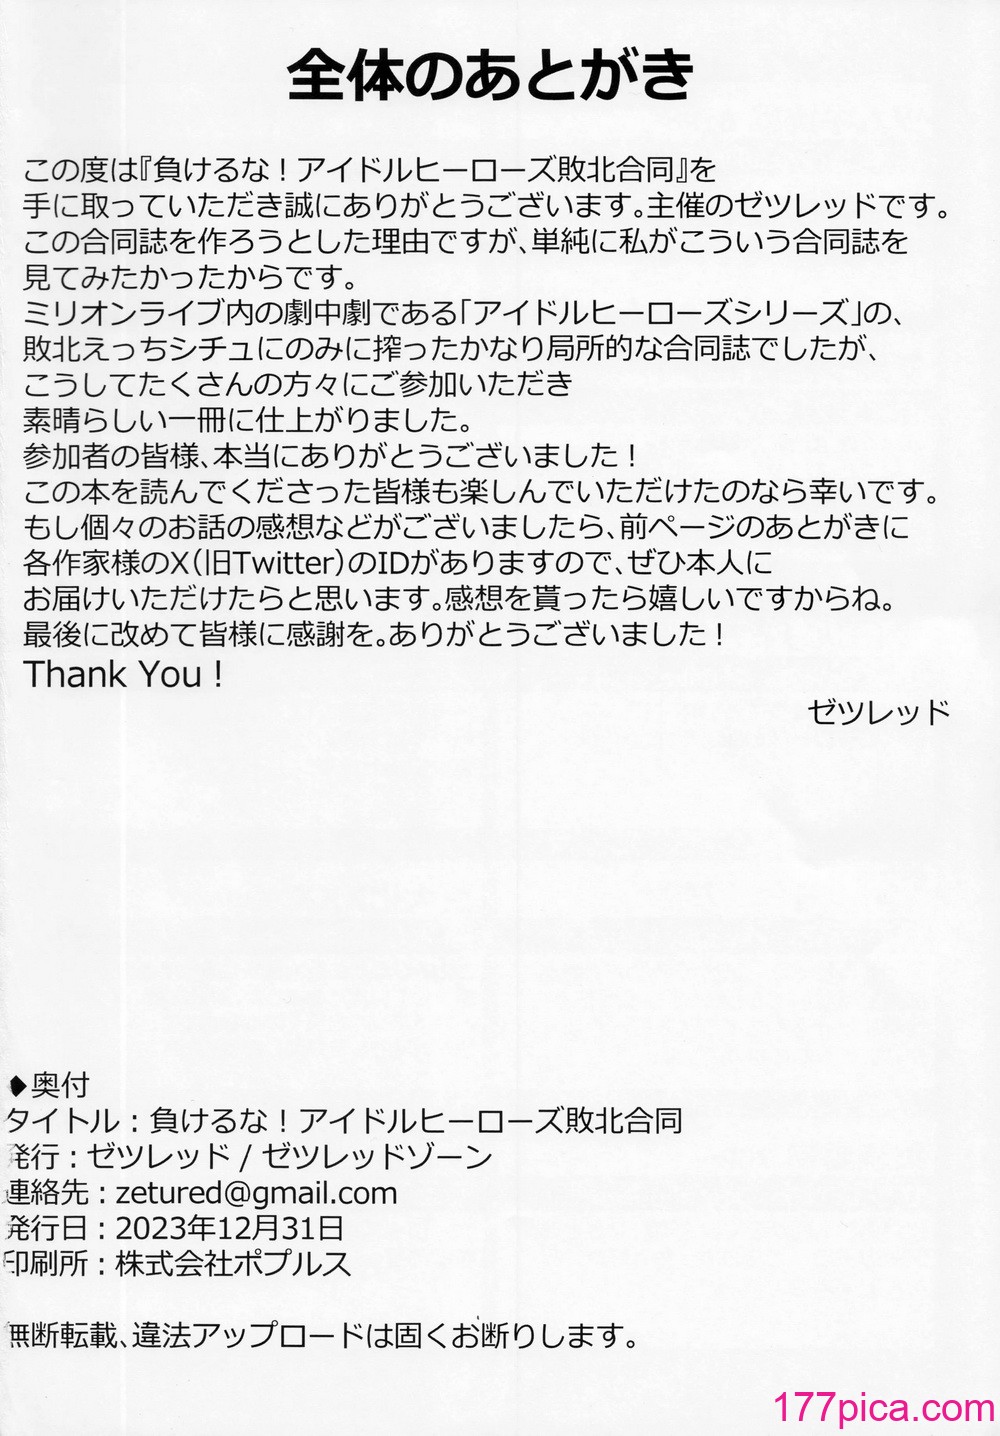 全体のあとがき
この度は『負けるな！アイドルヒーローズ敗北合同』を
手に取っていただき誠にありがとうございます。主催のゼツレッドです。
この合同誌を作ろうとした理由ですが、単純に私がこういう合同誌を
見てみたかったからです。
ミリオンライブ内の劇中劇である「アイドルヒーローズシリーズ」の、
敗北えっちシチュにのみに搾ったかなり局所的な合同誌でしたが、
こうしてたくさんの方々にご参加いただき
素晴らしい一冊に仕上がりました。
参加者の皆様、本当にありがとうございました！
この本を読んでくださった皆様も楽しんでいただけたのなら幸いです。
もし個々のお話の感想などがございましたら、前ページのあとがきに
各作家様のX（旧Twitter）のIDがありますので、ぜひ本人に
お届けいただけたらと思います。感想を貰ったら嬉しいですからね。
最後に改めて皆様に感謝を。ありがとうございました！
Thank You！
ゼツレッド
◆奥付
タイトル：負けるな！アイドルヒーローズ敗北合同
発行：ゼツレッド / ゼツレッドゾーン
連絡先：zetured@gmail.com
発行日：2023年12月31日
印刷所：株式会社ポプルス
無断転載、違法アップロードは固くお断りします。
177pica.com